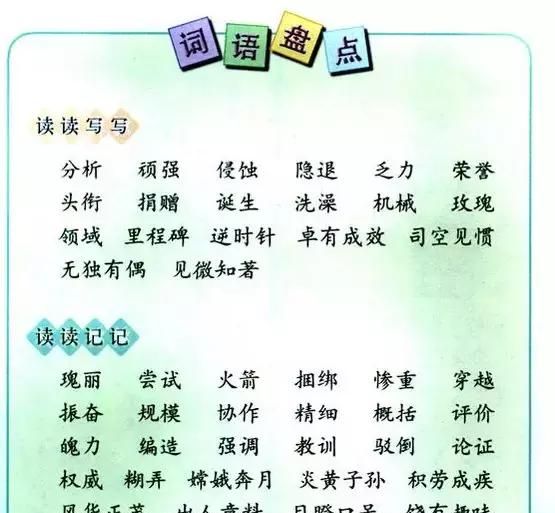 词语盘点
读读写写
分析 顽强 侵蚀 隐退 乏力 荣誉
头衔 捐赠 诞生 洗澡 机械 玫瑰
领域 里程碑 逆时针 卓有成效 司空见惯
无独有偶 见微知著
读读记记
瑰丽 尝试 火箭 捆绑 惨重 穿越
振奋 规模 协作 精细 概括 评价
魄力 编造 强调 教训 驳倒 论证
权威 糊弄 嫦娥奔月 炎黄子孙 积劳成疾
风华正茂 出人意料 目瞪口呆 饶有趣味